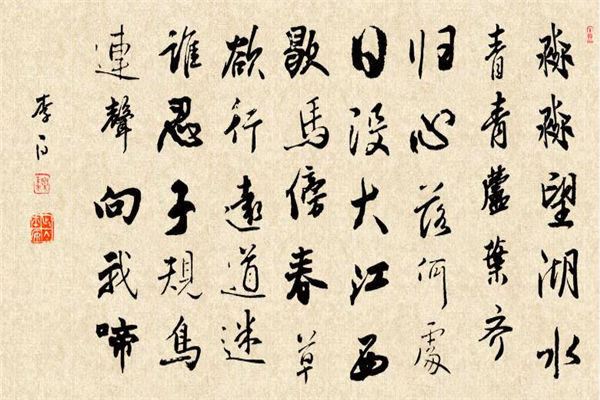 淼淼望湖水
青青蘆葉齐
归心落何處
日没大江西
歇馬傍春草
欲行遠道迷
誰忍子規鳥
連聲向我啼
李白